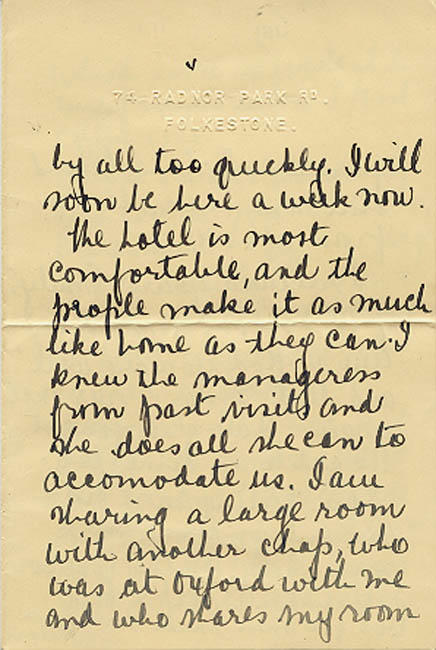 v
74 RADNOR PARK RD.
FOLKESTONE.
by all too quickly. I will
soon be here a week now.
The hotel is most
comfortable, and the
people make it as much
like home as they can. I
knew the manageress
from past visits and
she does all she can to
accomodate us. I am
sharing a large room
with another chap, who
was at Oxford with me
and who shares my room